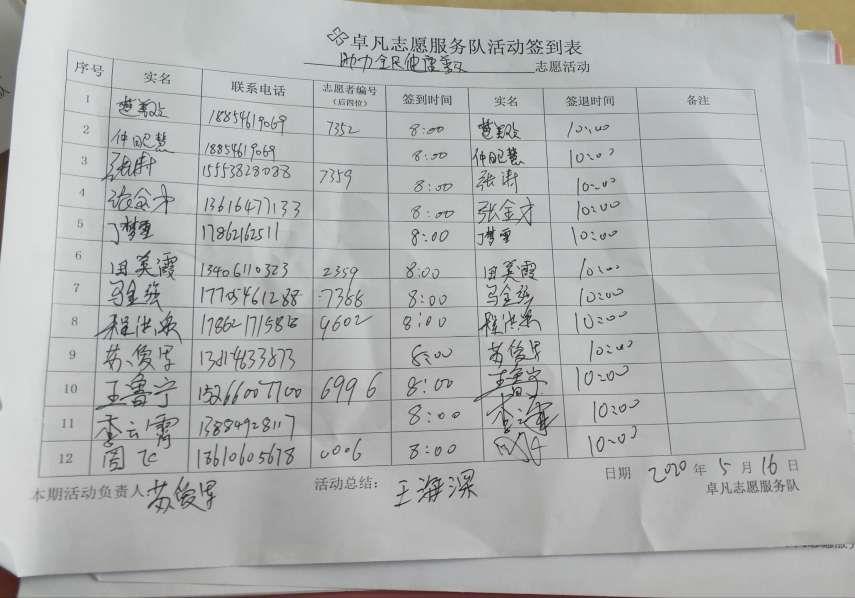 卓凡志愿服务队活动签到表
助力全民健康 志愿活动
序号 实名 联系电话 志愿者编号（后四位） 签到时间 实名 签退时间 备注
1 18854619069 7352 8:00 10:00
2 18854619069 8:00 10:00
3 张树 15553828088 7359 8:00 张树 10:00
4 张金才 13616477133 8:00 张金才 10:00
5 丁梦雪 17862162511 8:00 丁梦雪 10:00
6 田美霞 13406110323 2359 8:00 田美霞 10:00
7 马金强 17705461288 7366 8:00 马金强 10:00
8 程洪泉 4602 8:00 程洪泉 10:00
9 苏俊军 8:00 苏俊军 10:00
10 王鲁宁 15266007700 6996 8:00 王鲁宁 10:00
11 李云霄 13884928117 8:00 李云霄 10:00
12 周飞 18610605678 0006 8:00 10:00
本期活动负责人 苏俊军 活动总结： 王海深 日期 2020 年 5 月 16 日
卓凡志愿服务队